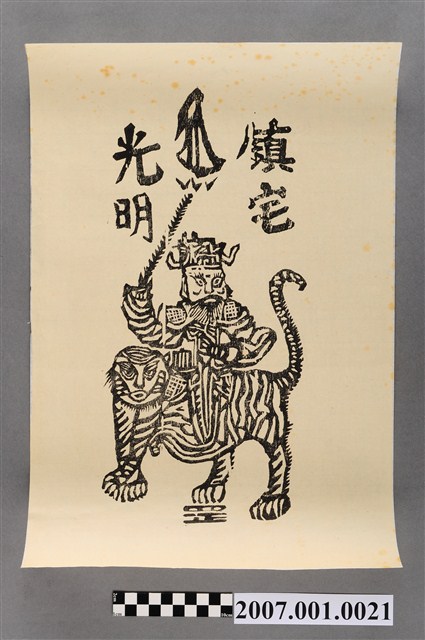 鎮宅
光明
2007.001.0021